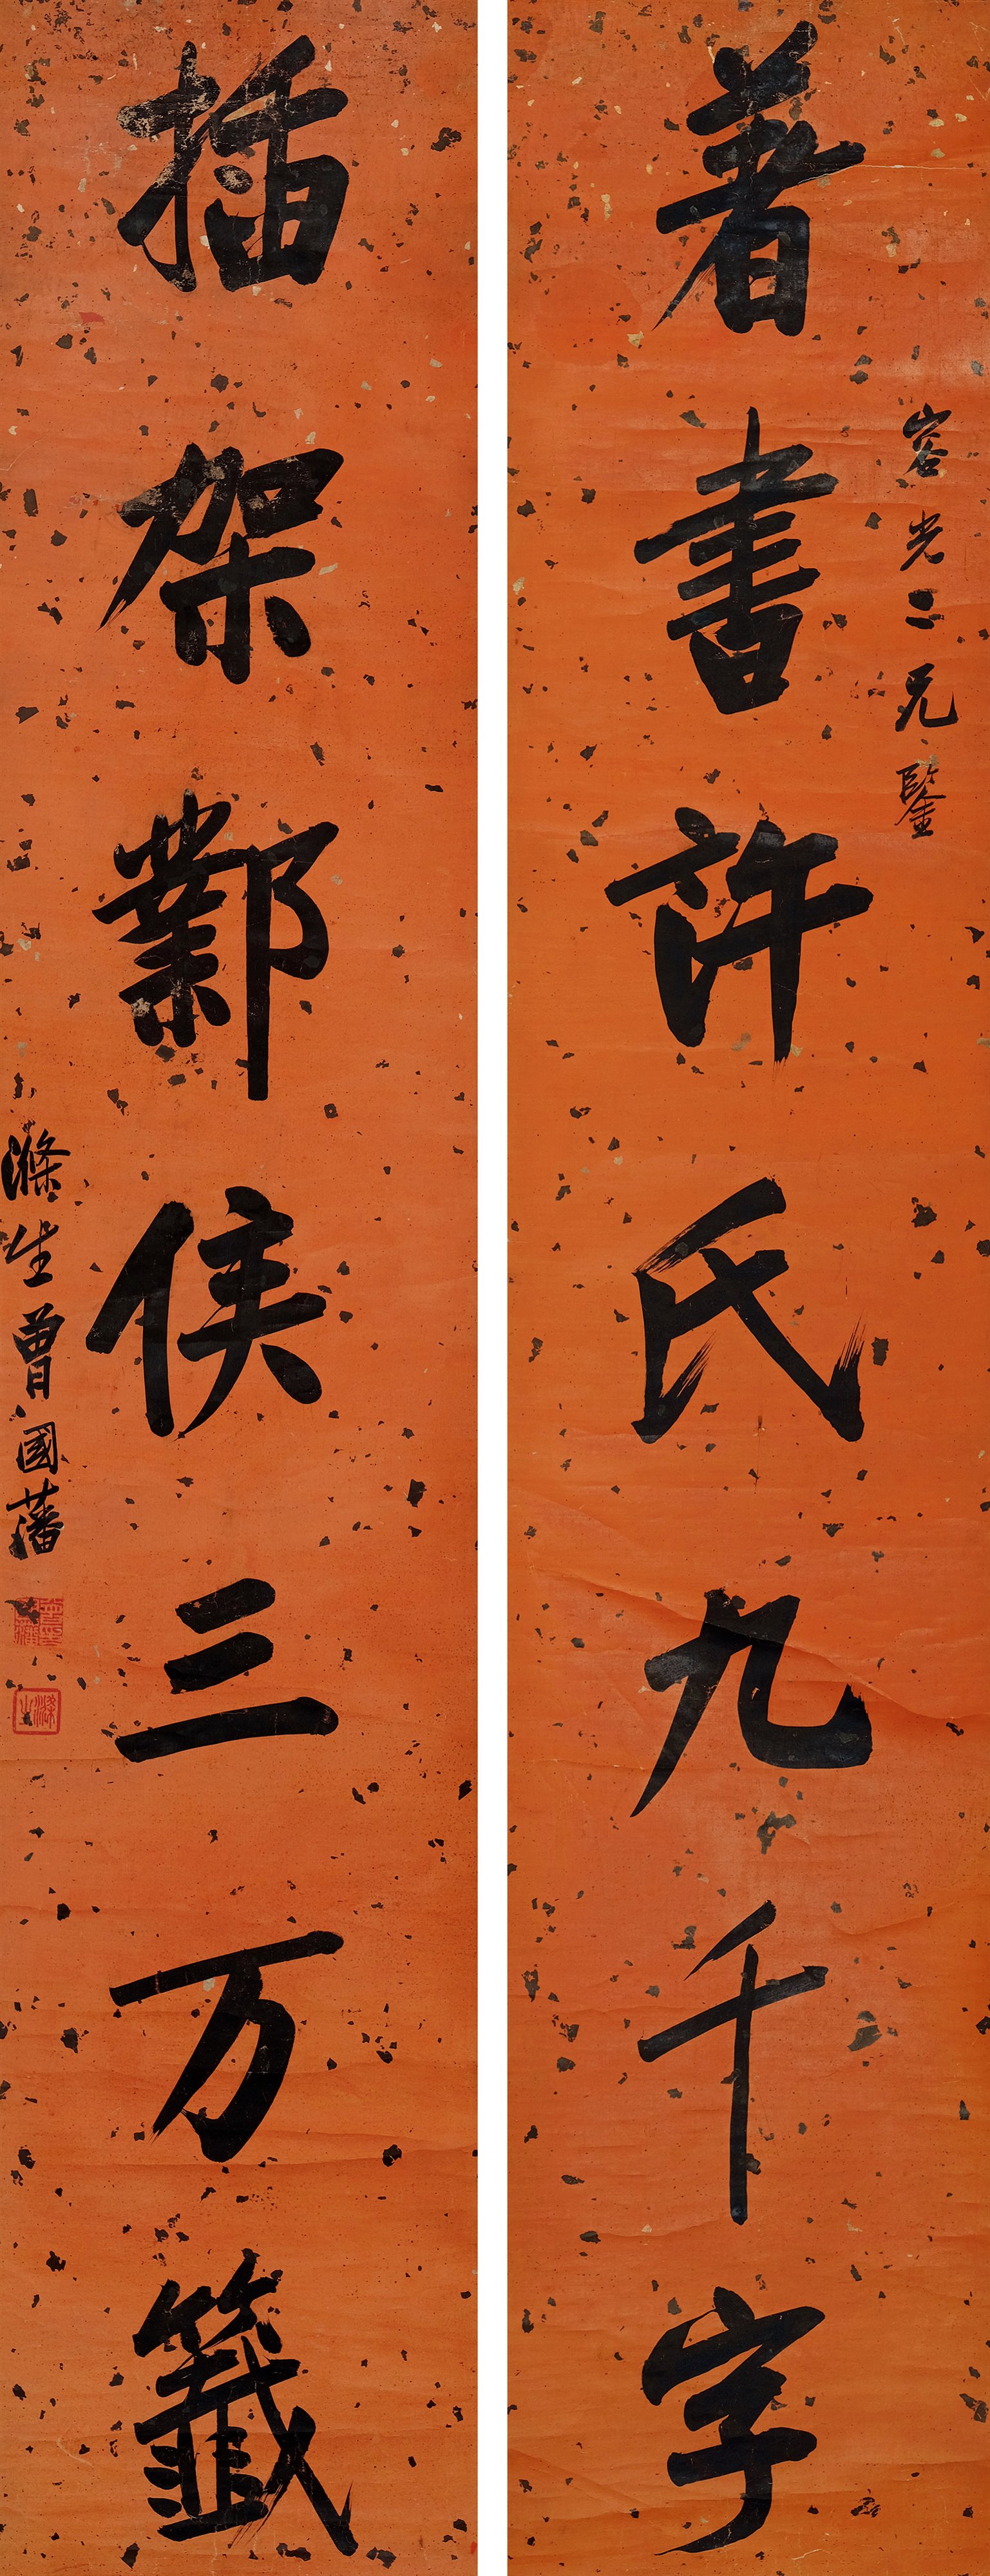 著書許氏九千字
容光二兄鑒
插架鄴侯三万籤
滌生曾國藩